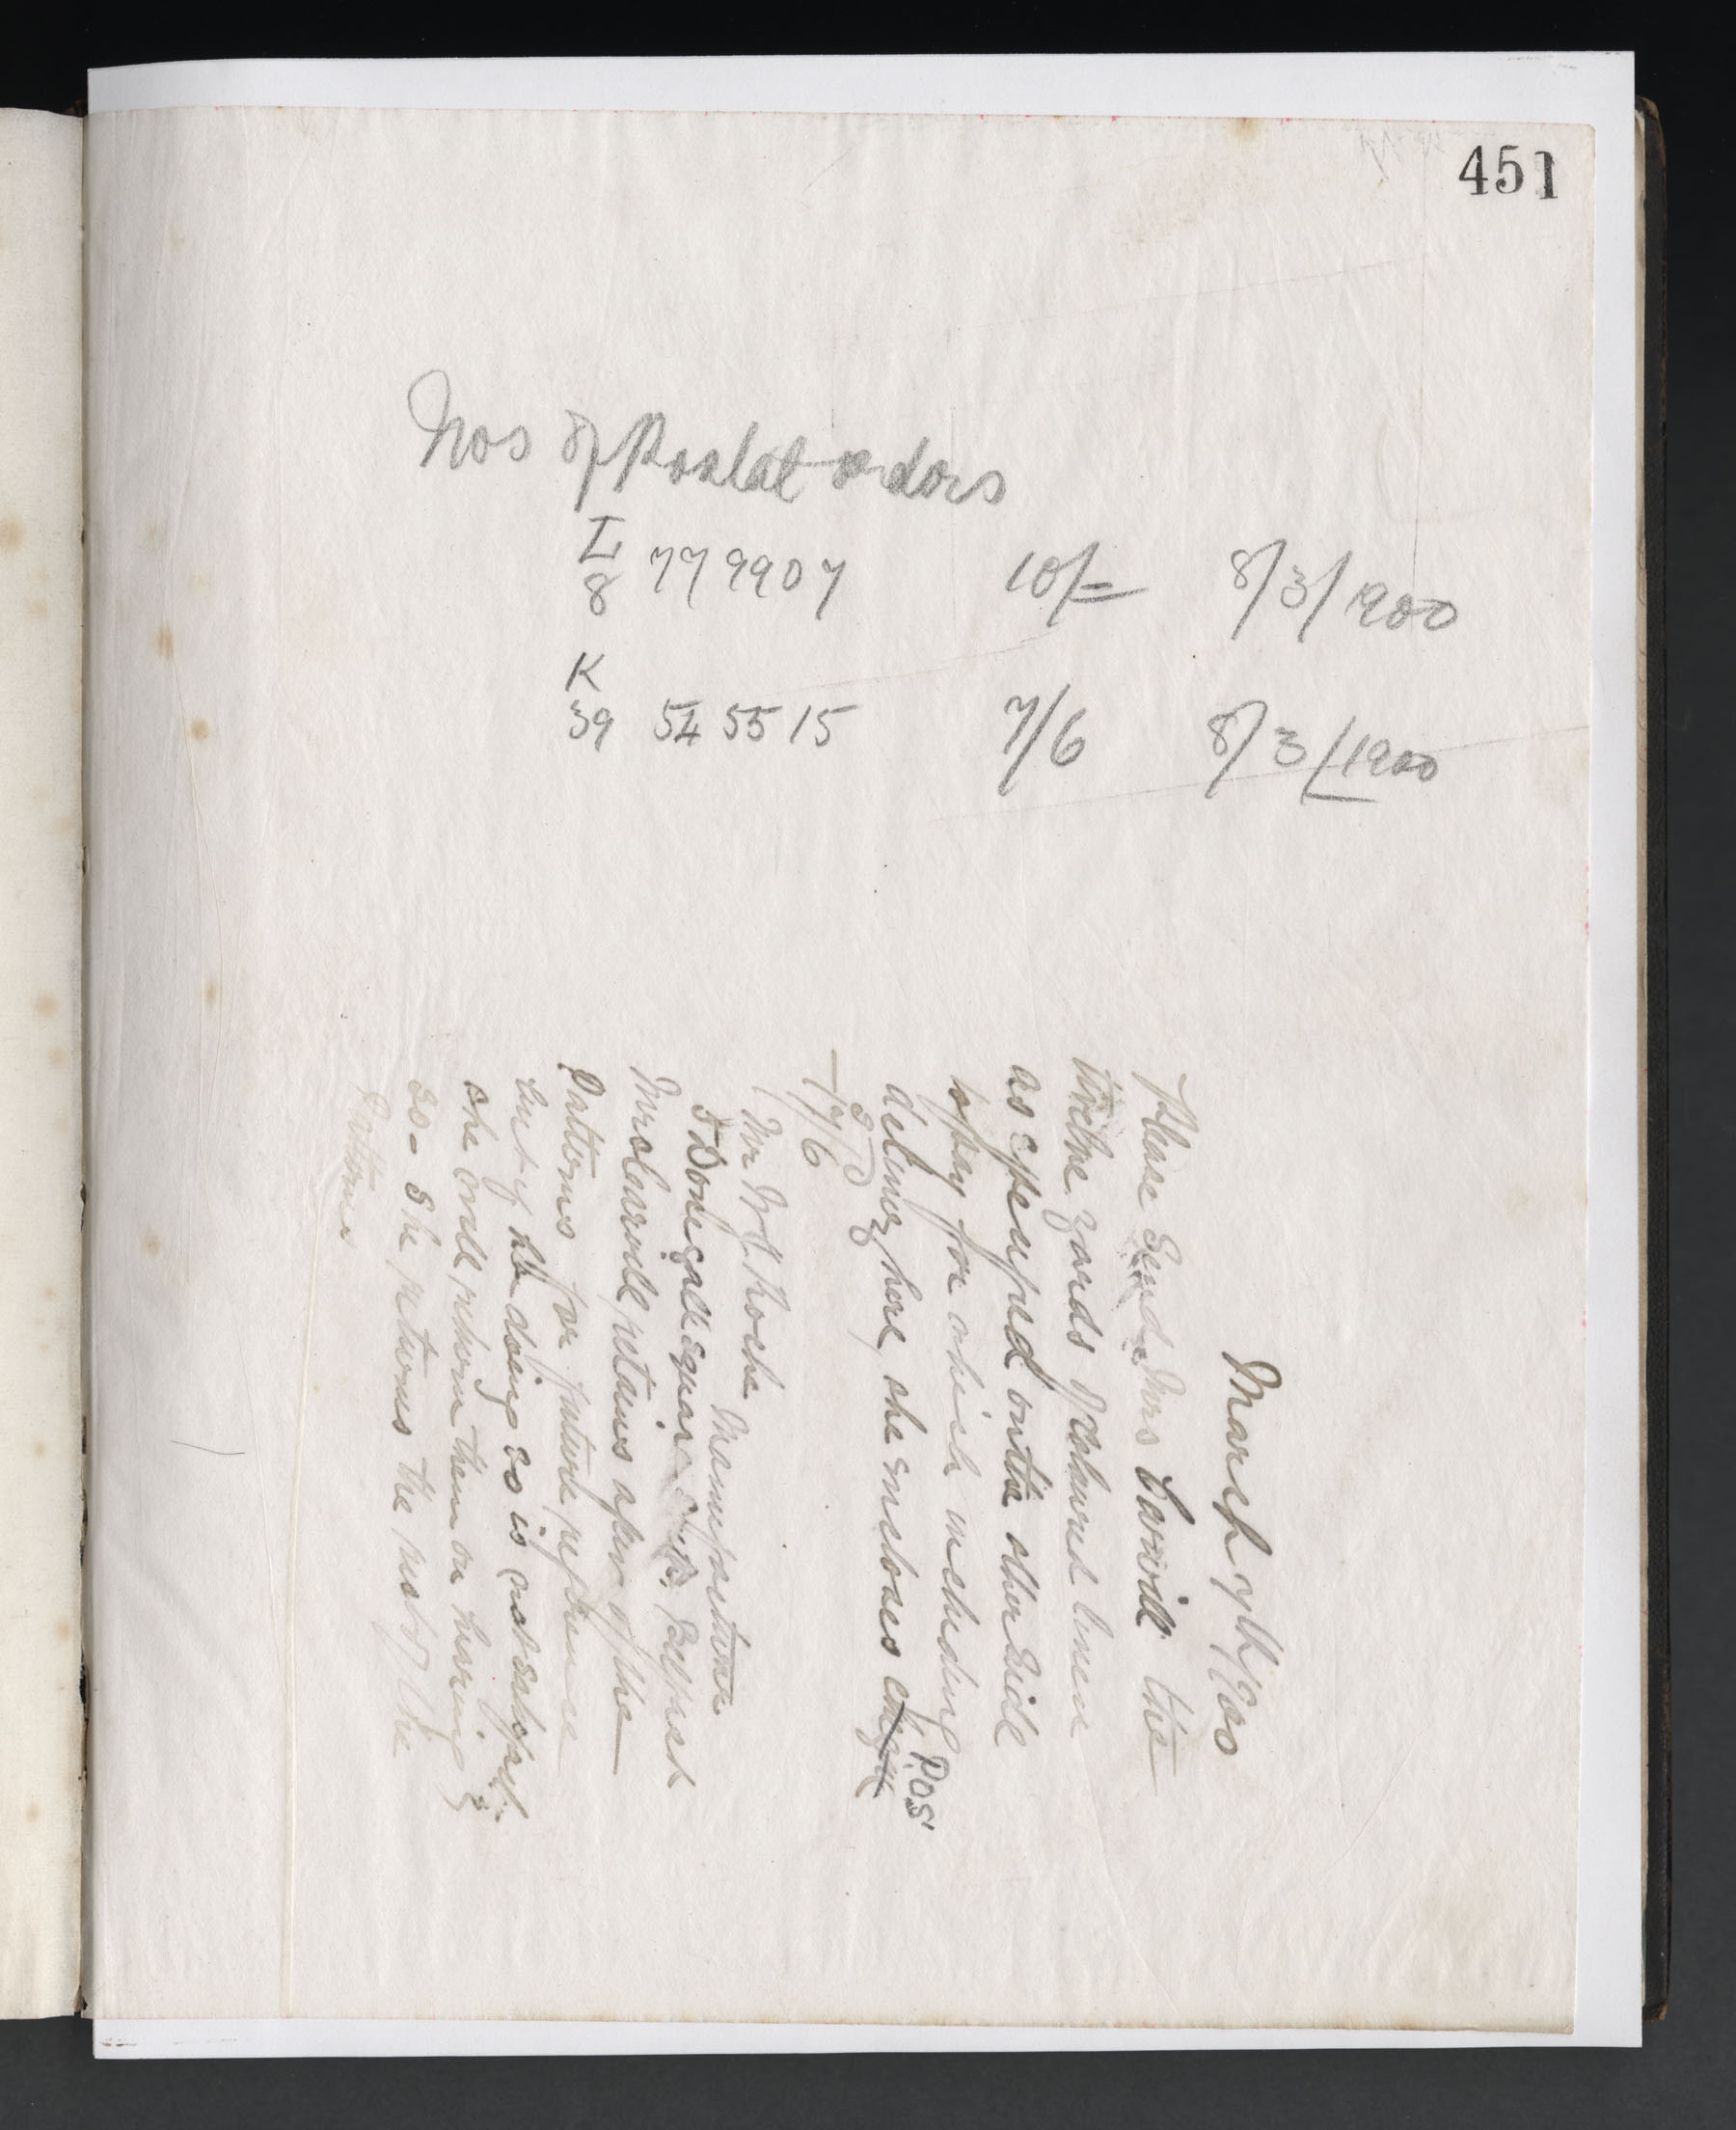 451
Nos of Postal orders
L
8 779907 10/= 8/3/1900
K
39 545515 7/6 8/3/1900
March 7th/1900
Please Send Mrs Carvill the
twelve yards of coloured linen
as specified on the other Side
to pay for which including
delivery here, she encloses POS'
17/6
Mr W J Roche Manufacturer
5 Donegall Square Belfast
Mrs Carvill retains a few of the
Patterns for future reference
but if her doing so is not
she will return them on hearing
so - She returns the rest of the
Patterns